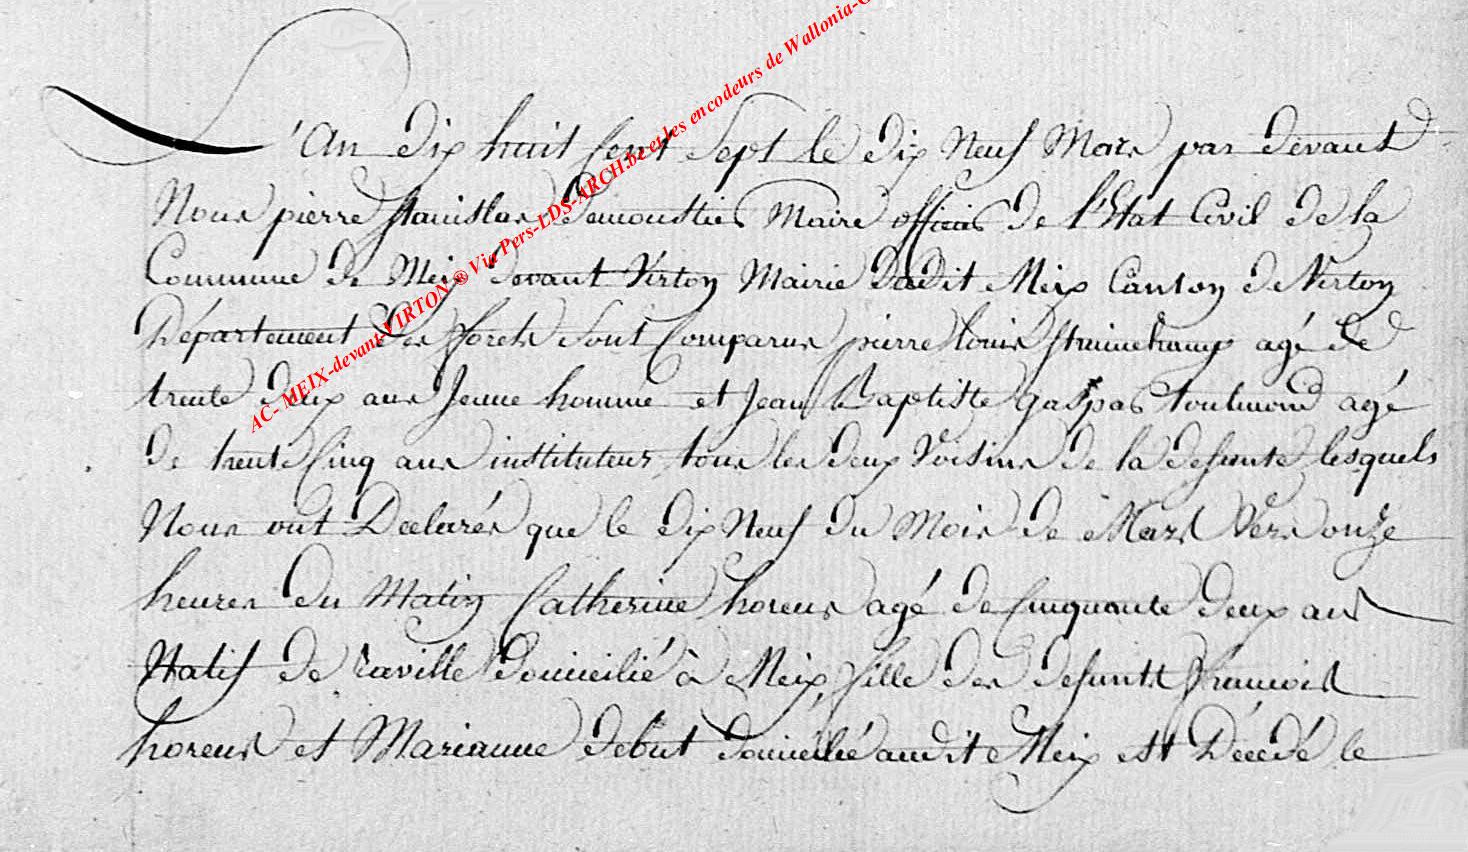 L'An dix huit Cent Sept le dix Neuf Mars par devant
Nous pierre stanislas demoustier Maire officier de l'Etat Civil de la
Commune de Meix devant Virton Mairie dudit Meix Canton de Virton
Département des forets sont Comparus pierre louis agé de
trente deux ans Jeune homme et Jean Baptiste gaspar toulmond agé
de trente Cinq ans instituteur tous les deux Voisins de la defunte lesquels
Nous ont Declarés que le dix Neuf du Mois de Mars Vers onze
heures du Matin Catherine horeus agé de Cinquante deux ans
Natif de raville domicilié à Meix fille des defunts françois
horeus et Marianne debut domicilié audit Meix est Décédé le
AC- MEIX-devant-VIRTON ® Via Pers-LDS-ARCH.be et les encodeurs de Wallonia-G